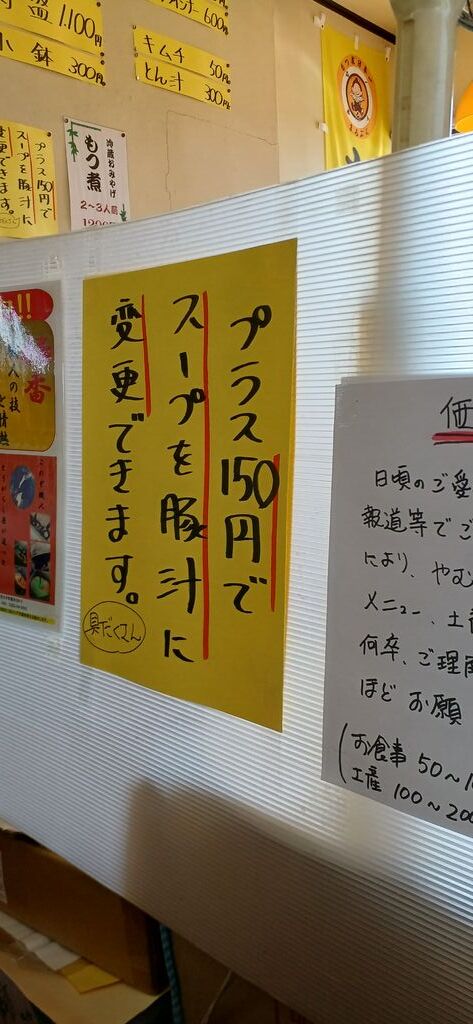 1,100円
小鉢 300円
600円
キムチ 50円
とん汁 300円
プラス150円で
スープを豚汁に
変更できます。
冷蔵おみやげ
もつ煮
2〜3人前
プラス150円で
スープを豚汁に
変更できます。
具だくさん
!!
番
人の技
と情熱
価
日頃のご愛
報道等でこ
により、やむ
メニュー、土産
何卒、ご理解
ほど お願
お食事 50〜1
土産 100〜200